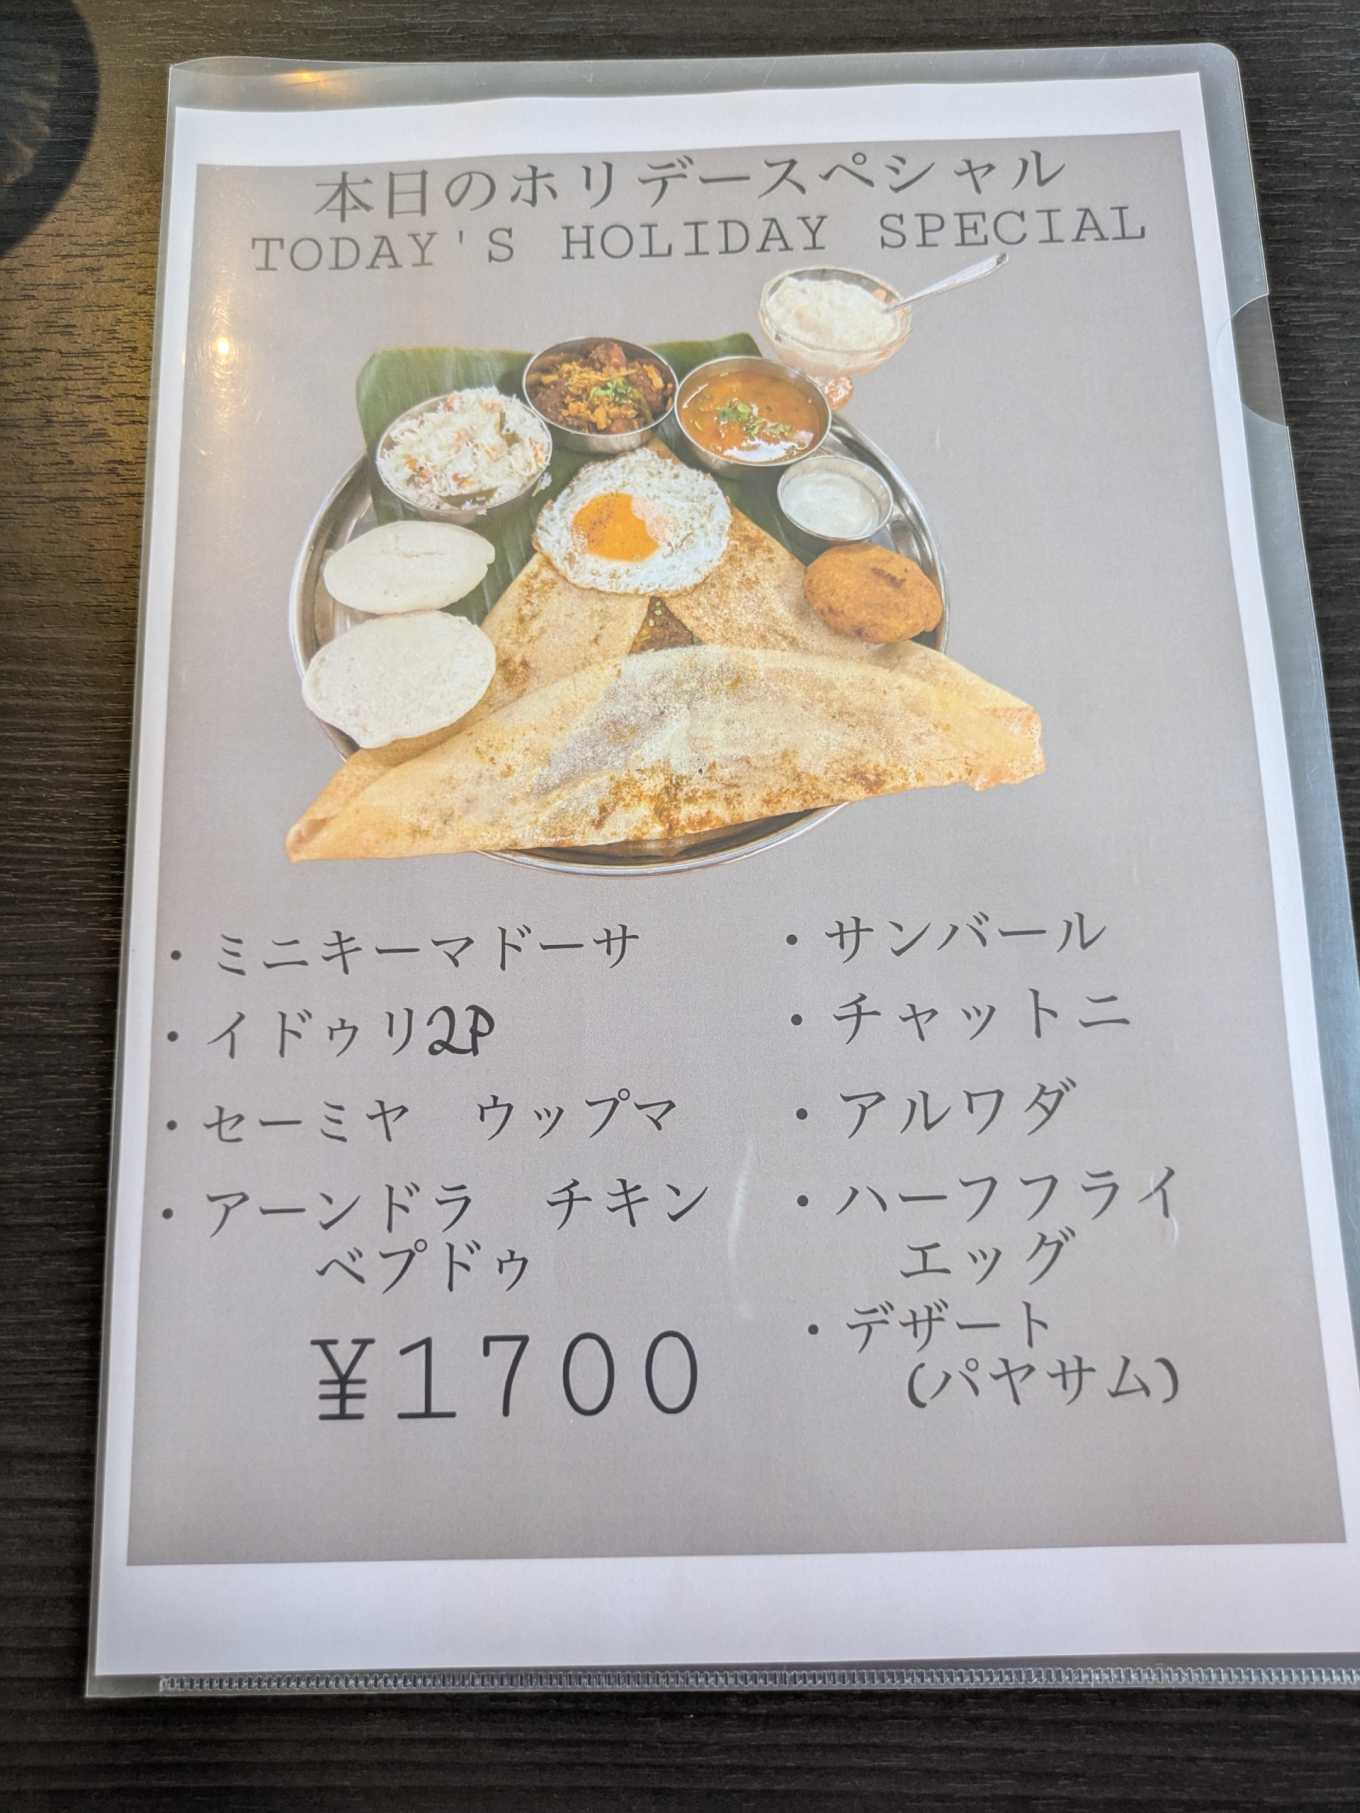 本日のホリデースペシャル
TODAY'S HOLIDAY SPECIAL
・ミニキーマドーサ
・イドゥリ2P
・セーミヤ　ウップマ
・アーンドラ　チキン
ベプドゥ
¥1700
・サンバール
・チャットニ
・アルワダ
・ハーフフライ
エッグ
・デザート
(パヤサム)